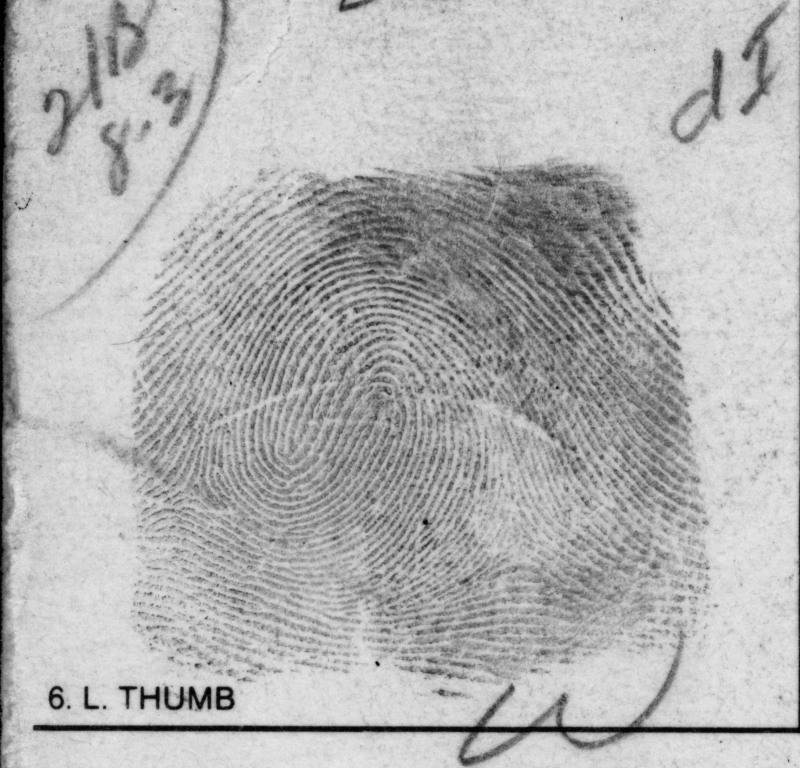 2/13
8.3
dI
6. L. THUMB
W